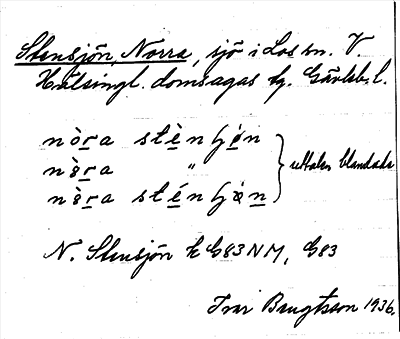 Stensjön, Norra, sjö i Los sn. V.
Hälsingl. domsagas tg. Gävleb. l.
nòra stènʃø̀n
nὰra "
nὰra sténʃæn
uttalen blandade
N. Stensjön k G83 NM, G83
Ivar Bengtsson 1936.